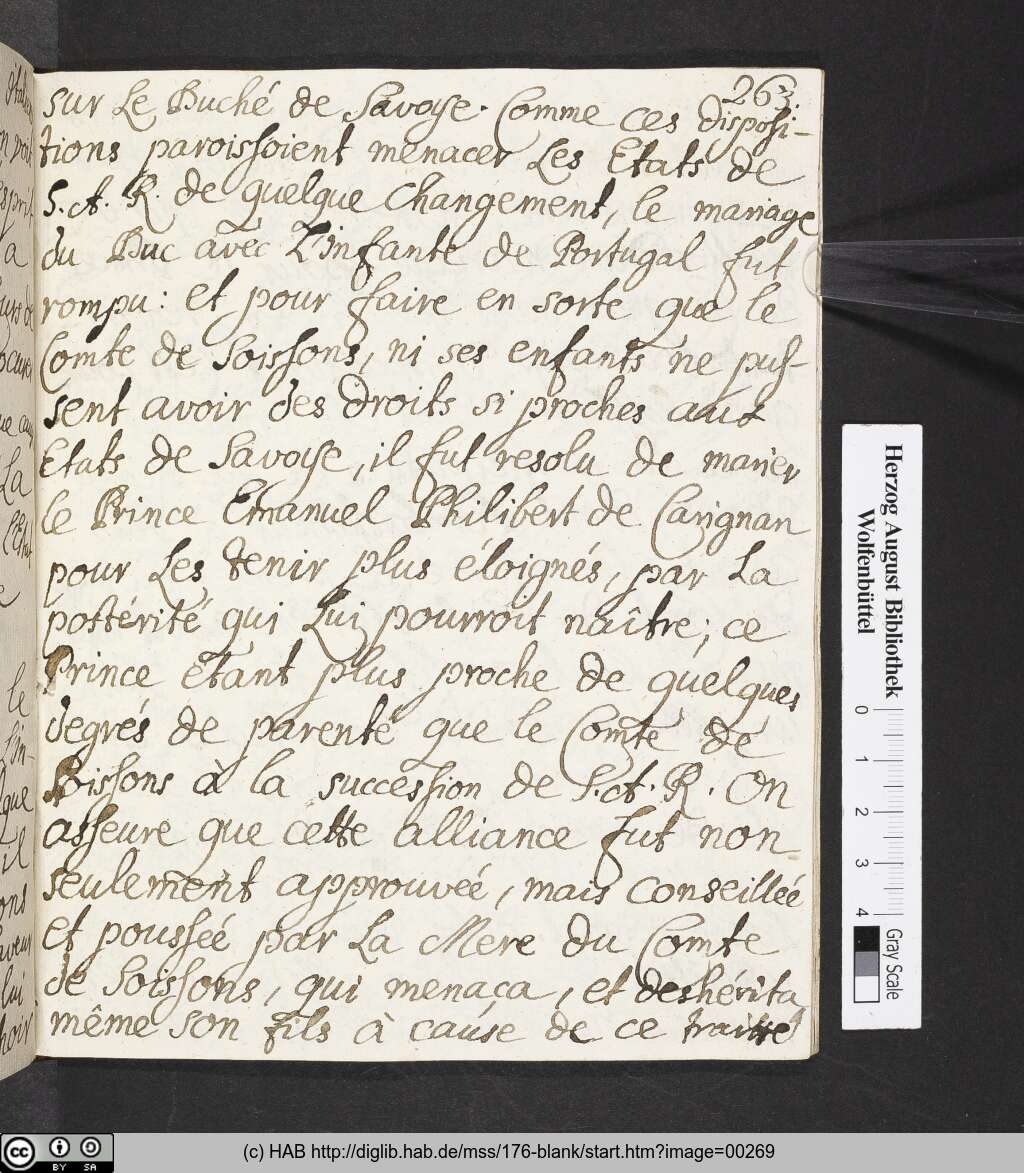 263.
sur Le Duché de Savoye. Comme ces disposi-
tions paroissoient menacer Les Etats de
S. A. R. de quelque Changement, le mariage
du Duc avec L'infante de Portugal fut
rompu: et pour faire en sorte que le
Comte de Soissons, ni ses enfants ne pus-
sent avoir des droits si proches aux
Etats de Savoye, il fut resolu de marier
le Prince Emanuel Philibert de Carignan
pour Les tenir plus éloignés, par La
postérité qui Lui pourroit naître; ce
Prince etant plus proche de quelques
degrés de parenté que le Comte de
Soissons à la succession de S. A. R. On
asseure que cette alliance fut non
seulement approuveé, mais conseilleé
et pousseé par La Mere du Comte
de Soissons, qui menaça, et deshérita
même son fils à cause de ce
Herzog August Bibliothek
Wolfenbüttel
0 1 2 3 4
Gray Scale
cc BY SA
(c) HAB http://diglib.hab.de/mss/176-blank/start.htm?image=00269